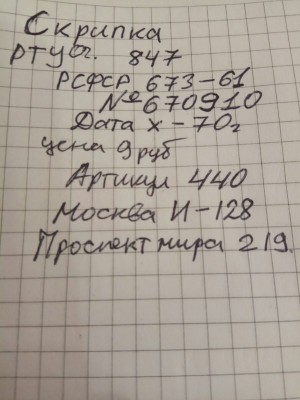 Скрипка
РТУ 847
РСФСР 673-61
№670910
Дата X-70г
цена 9 руб
Артикул 440
Москва И-128
Проспект мира 219.